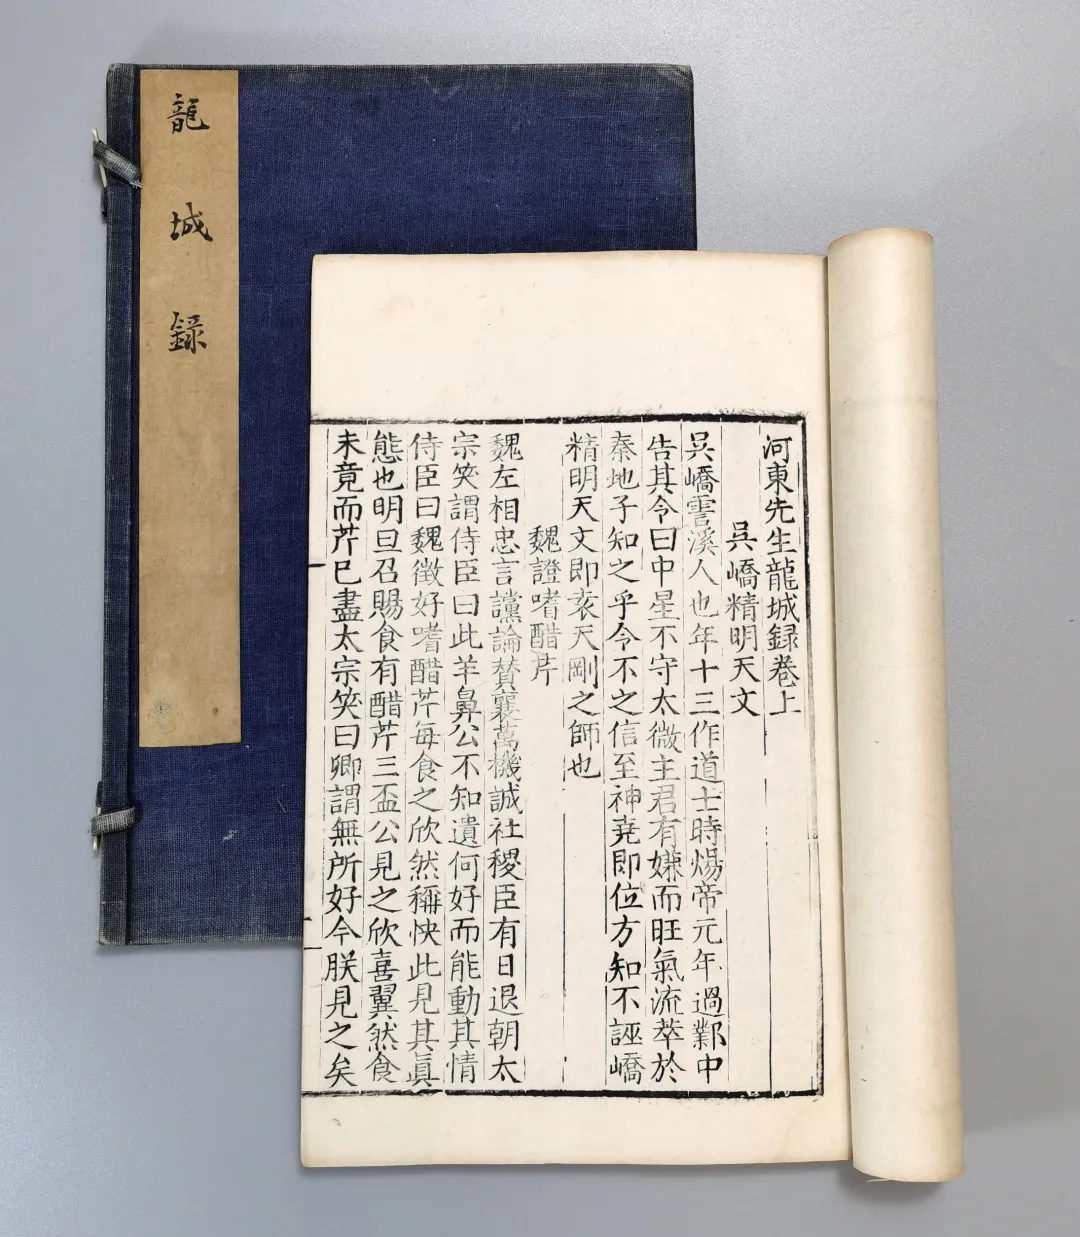 龍城録
河東先生龍城録卷上
吳嶠精明天文
吳嶠霅溪人也年十三作道士時煬帝元年過鄴中
告其令曰中星不守太微主君有嫌而旺氣流萃於
秦地子知之乎令不之信至神堯即位方知不誣嶠
精明天文即袁天剛之師也
魏證嗜醋芹
魏左相忠言讜論賛襄萬機誠社稷臣有日退朝太
宗笑謂侍臣曰此羊鼻公不知遺何好而能動其情
侍臣曰魏徵好嗜醋芹每食之欣然稱快此見其真
態也明旦召賜食有醋芹三盃公見之欣喜翼然食
未竟而芹已盡太宗笑曰卿謂無所好今朕見之矣